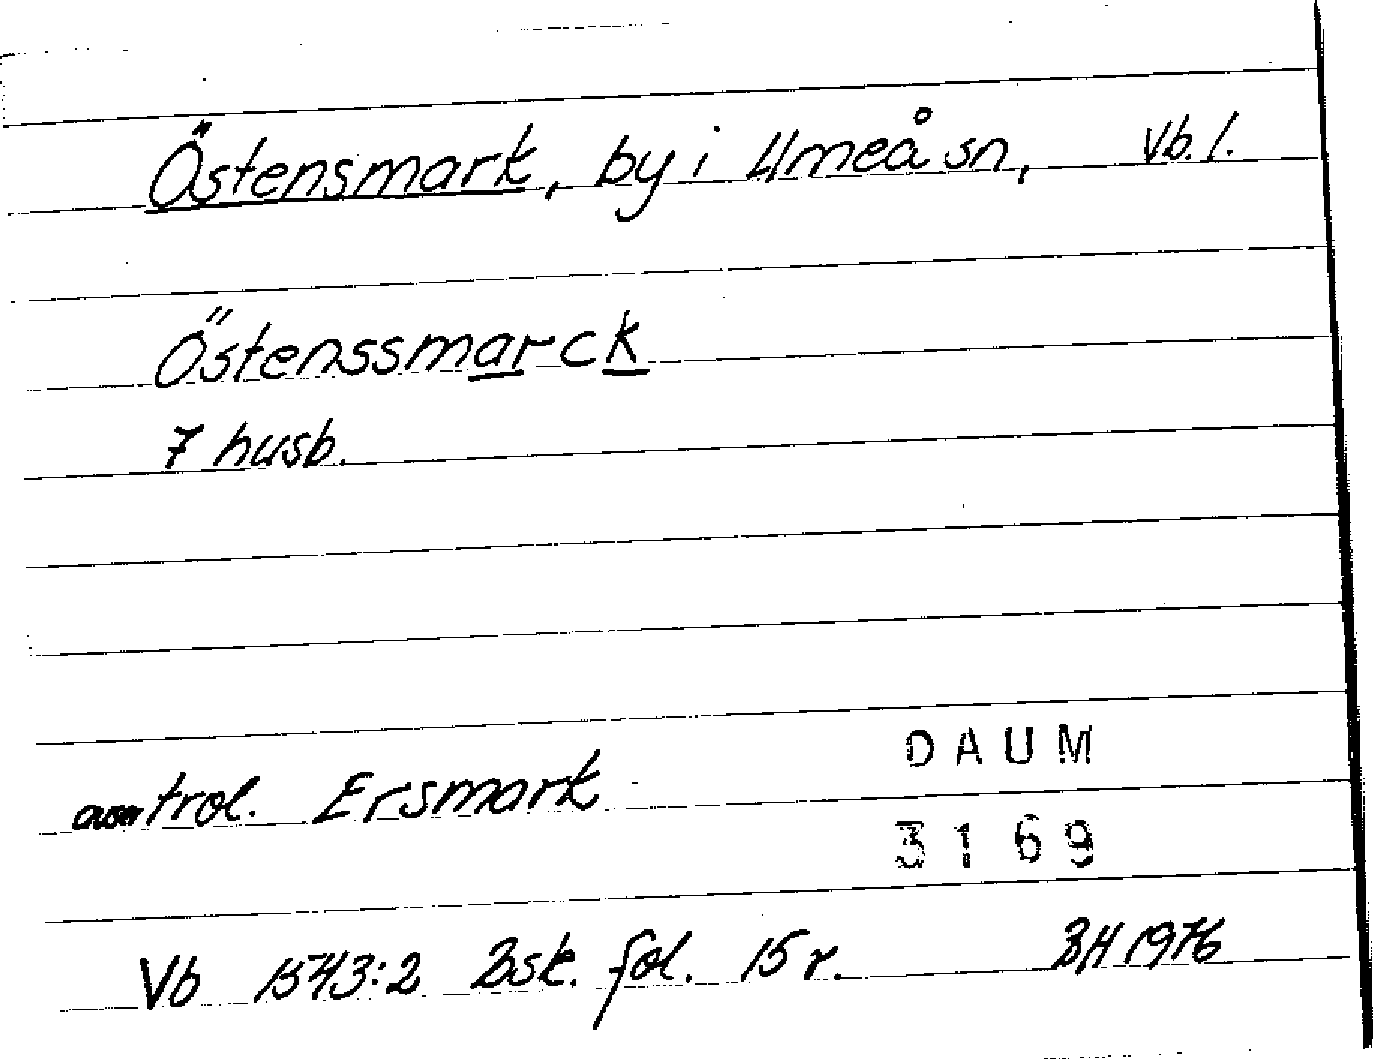 Östensmark, by i Umeå sn, Vb. l.
Östenssmarck
7 husb.
trol. Ersmark
DAUM
3169
Vb 1543:2 Bsk. fol. 15 r. BH 1976